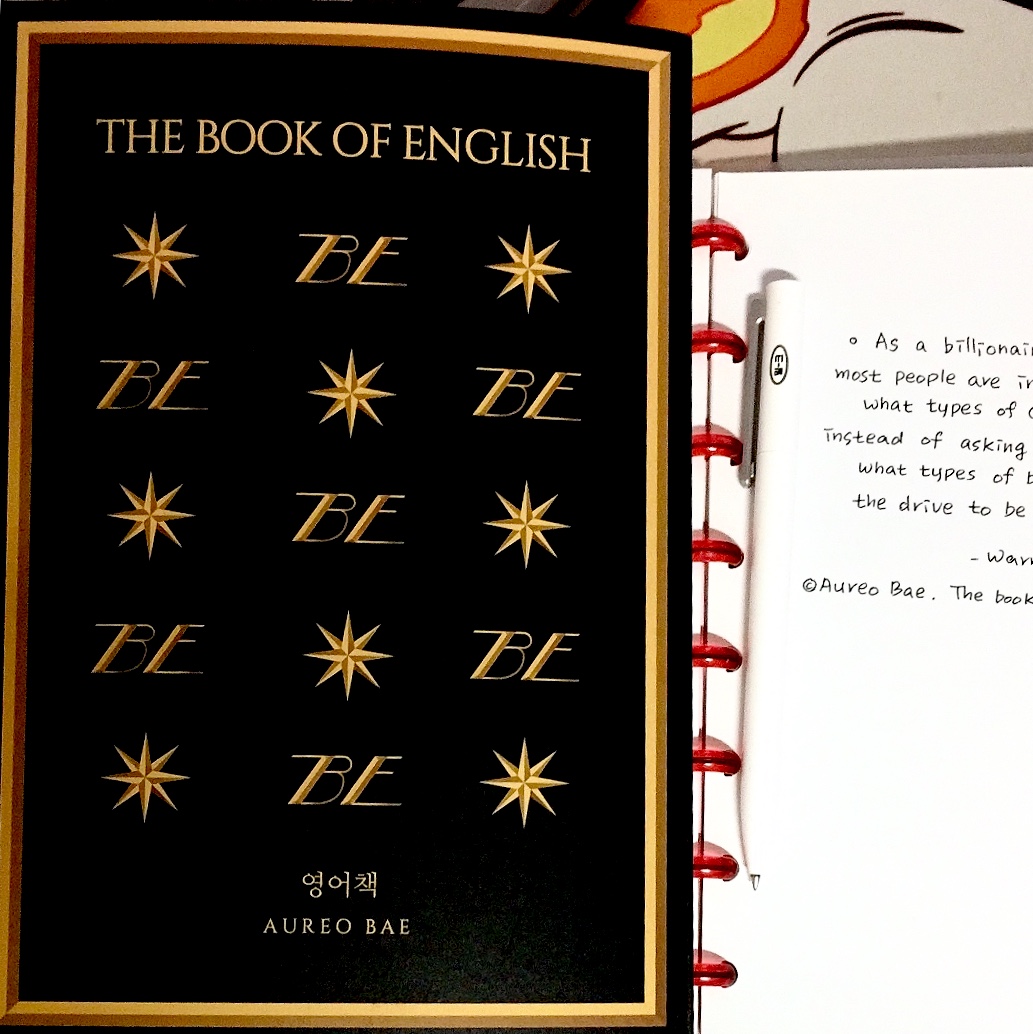 THE BOOK OF ENGLISH
BE
BE BE
BE
BE BE
BE
영어책
AUREO BAE
° As a
most people are
what types of
instead of asking
what types of
the drive to be
-
©Aureo Bae. The book